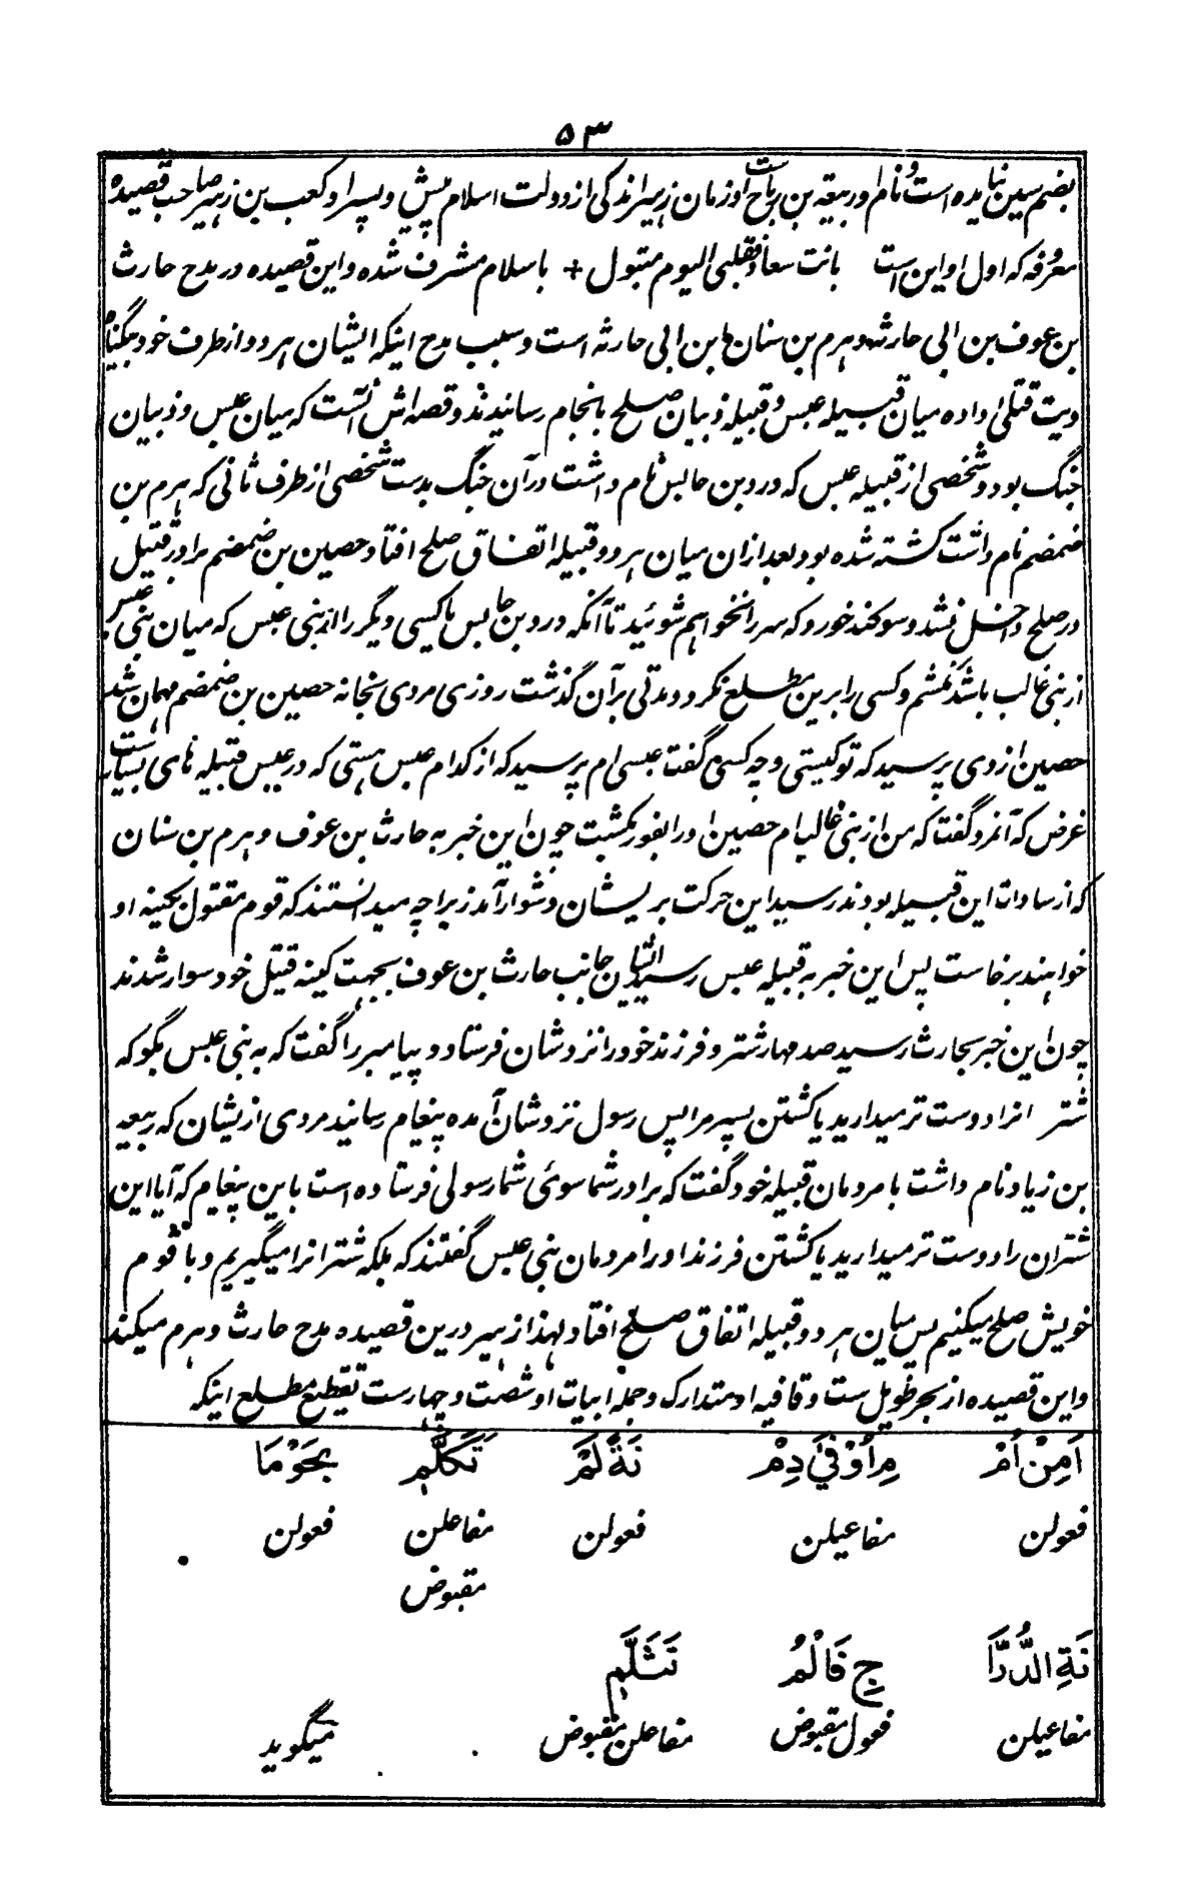 ۵۳
بضم سین نیامده است و نام او ربیعه بن ریاح است او زمان زهیر اندکی از دولت اسلام پیش و پسر او کعب بن زهیر صاحب قصیده
معروفه که اول او این است بانت سعاد فقلبی الیوم متبول + باسلام مشرف شده و این قصیده در مدح حارث
بن عوف بن ابی حارثه و هرم بن سنان بن ابی حارثه است و سبب مدح اینکه ایشان هر دو از طرف خود بیگناه
دیت قتلی داده میان قبیله عبس و قبیله ذبیان صلح بانجام رسانیدند و قصه اش آنست که میان عبس و ذبیان
جنگ بود و شخصی از قبیله عبس که ورد بن حابس نام داشت در آن جنگ بدست شخصی از طرف ثانی که هرم بن
ضمضم نام داشت کشته شده بود بعد ازان میان هر دو قبیله اتفاق صلح افتاد حصین بن ضمضم برادر قتیل
در صلح داخل نشد و سوکند خورد که سر را نخواهم شوئید تا آنکه ورد بن حابس یا کسی دیگر را از بنی عبس که میان بنی عبس
از بنی غالب باشد نکشم و کسی را برین مطلع نکرد و مدتی بر آن گذشت روزی مردی بخانه حصین بن ضمضم مهمان شد
حصین از وی پرسید که تو کیستی و چه کسی گفت عبسی ام پرسید که از کدام عبس هستی که در عبس قبیله های بسیار است
غرض که آنمرد گفت که من از بنی غالب ام حصین او را بفور بکشت چون این خبر به حارث بن عوف و هرم بن سنان
که از سادات این قبیله بودند رسید این حرکت بر ایشان دشوار آمد زیرا چه میدانستند که قوم مقتول بکینه او
خواهند برخاست پس این خبر به قبیله عبس رسید ایشان جانب حارث بن عوف بجهت کینه قتیل خود سوار شدند
چون این خبر بحارث رسید صد مهار شتر و فرزند خود را نزدشان فرستاد و پیامبر را گفت که به بنی عبس بگو که
شتر انرا دوست تر میدارید یا کشتن پسر مرا پس رسول نزدشان آمده پیغام رسانید مردی از یشان که ربیعه
بن زیاد نام داشت با مردمان قبیله خود گفت که برادر شما سوئی شما رسولی فرستاده است باین پیغام که آیا این
شتران را دوست تر میدارید یا کشتن فرزند او را مردمان بنی عبس گفتند که بلکه شتر انرا میگیریم و با قوم
خویش صلح میکنیم پس میان هر دو قبیله اتفاق صلح افتاد لهذا زهیر درین قصیده مدح حارث و هرم میکند
و این قصیده از بحر طویل ست و قافیه او متدارک و جمله ابیات او شصت و چهارست تقطیع مطلع اینکه
اَمِنْ اُمْ مِ اَوْفٰی دِمْ نَةٌ لَمْ تَكَلَّمِ بِحَوْمَا
فعولن مفاعیلن فعولن مفاعلن فعولن
مقبوض
نَةِ الدُّدَّا جِ فَالْمُ تَثَلَّمِ
مفاعیلن فعول مقبوض مفاعلن مقبوض میگوید